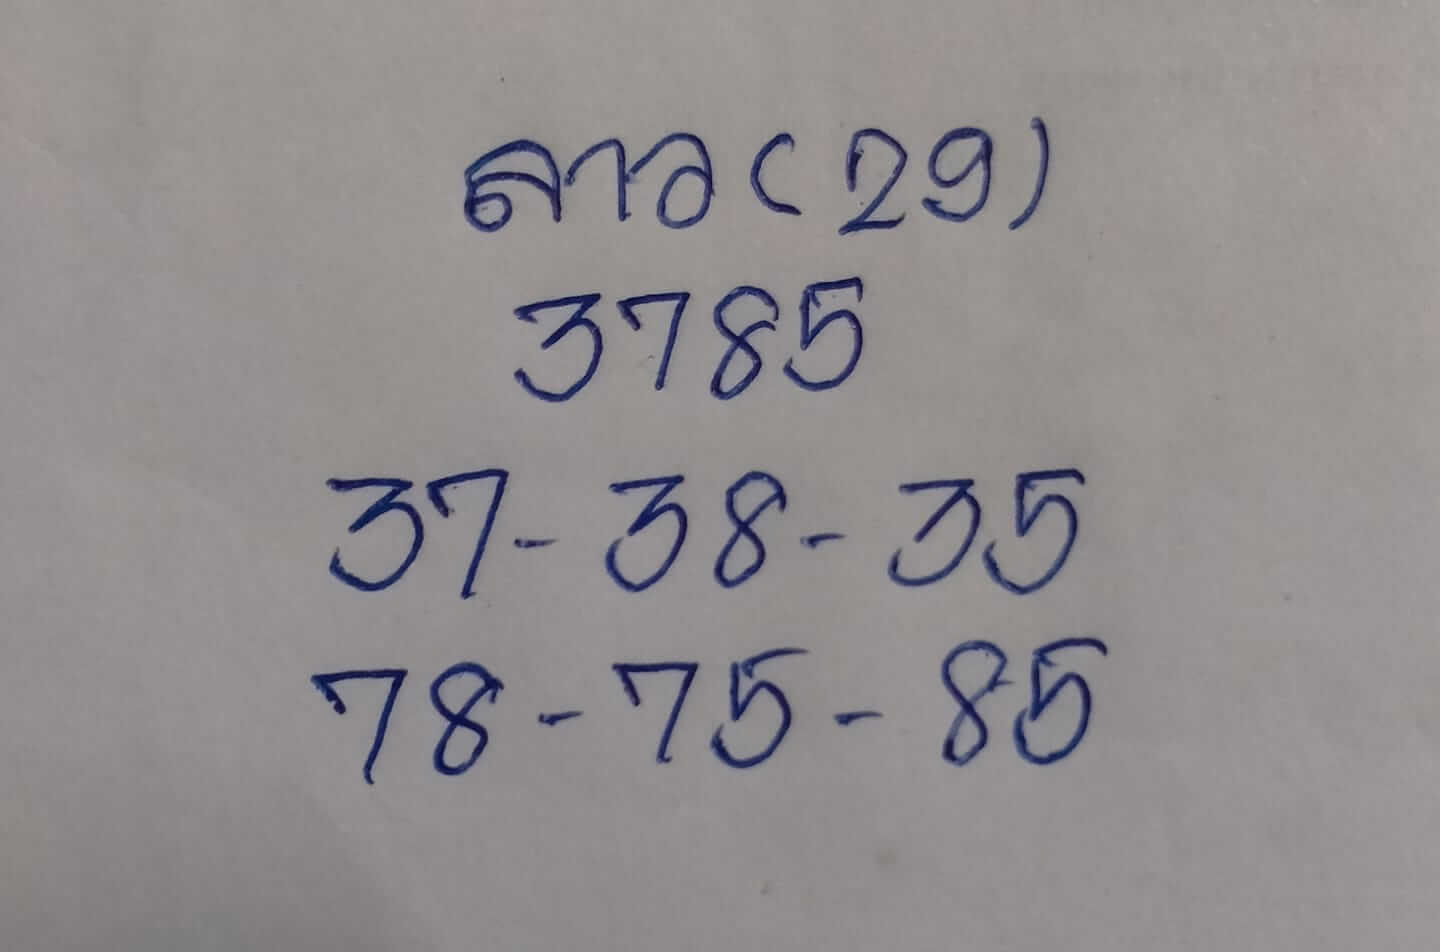 ลาว (29)
3785
37 - 38 - 35
78 - 75 - 85